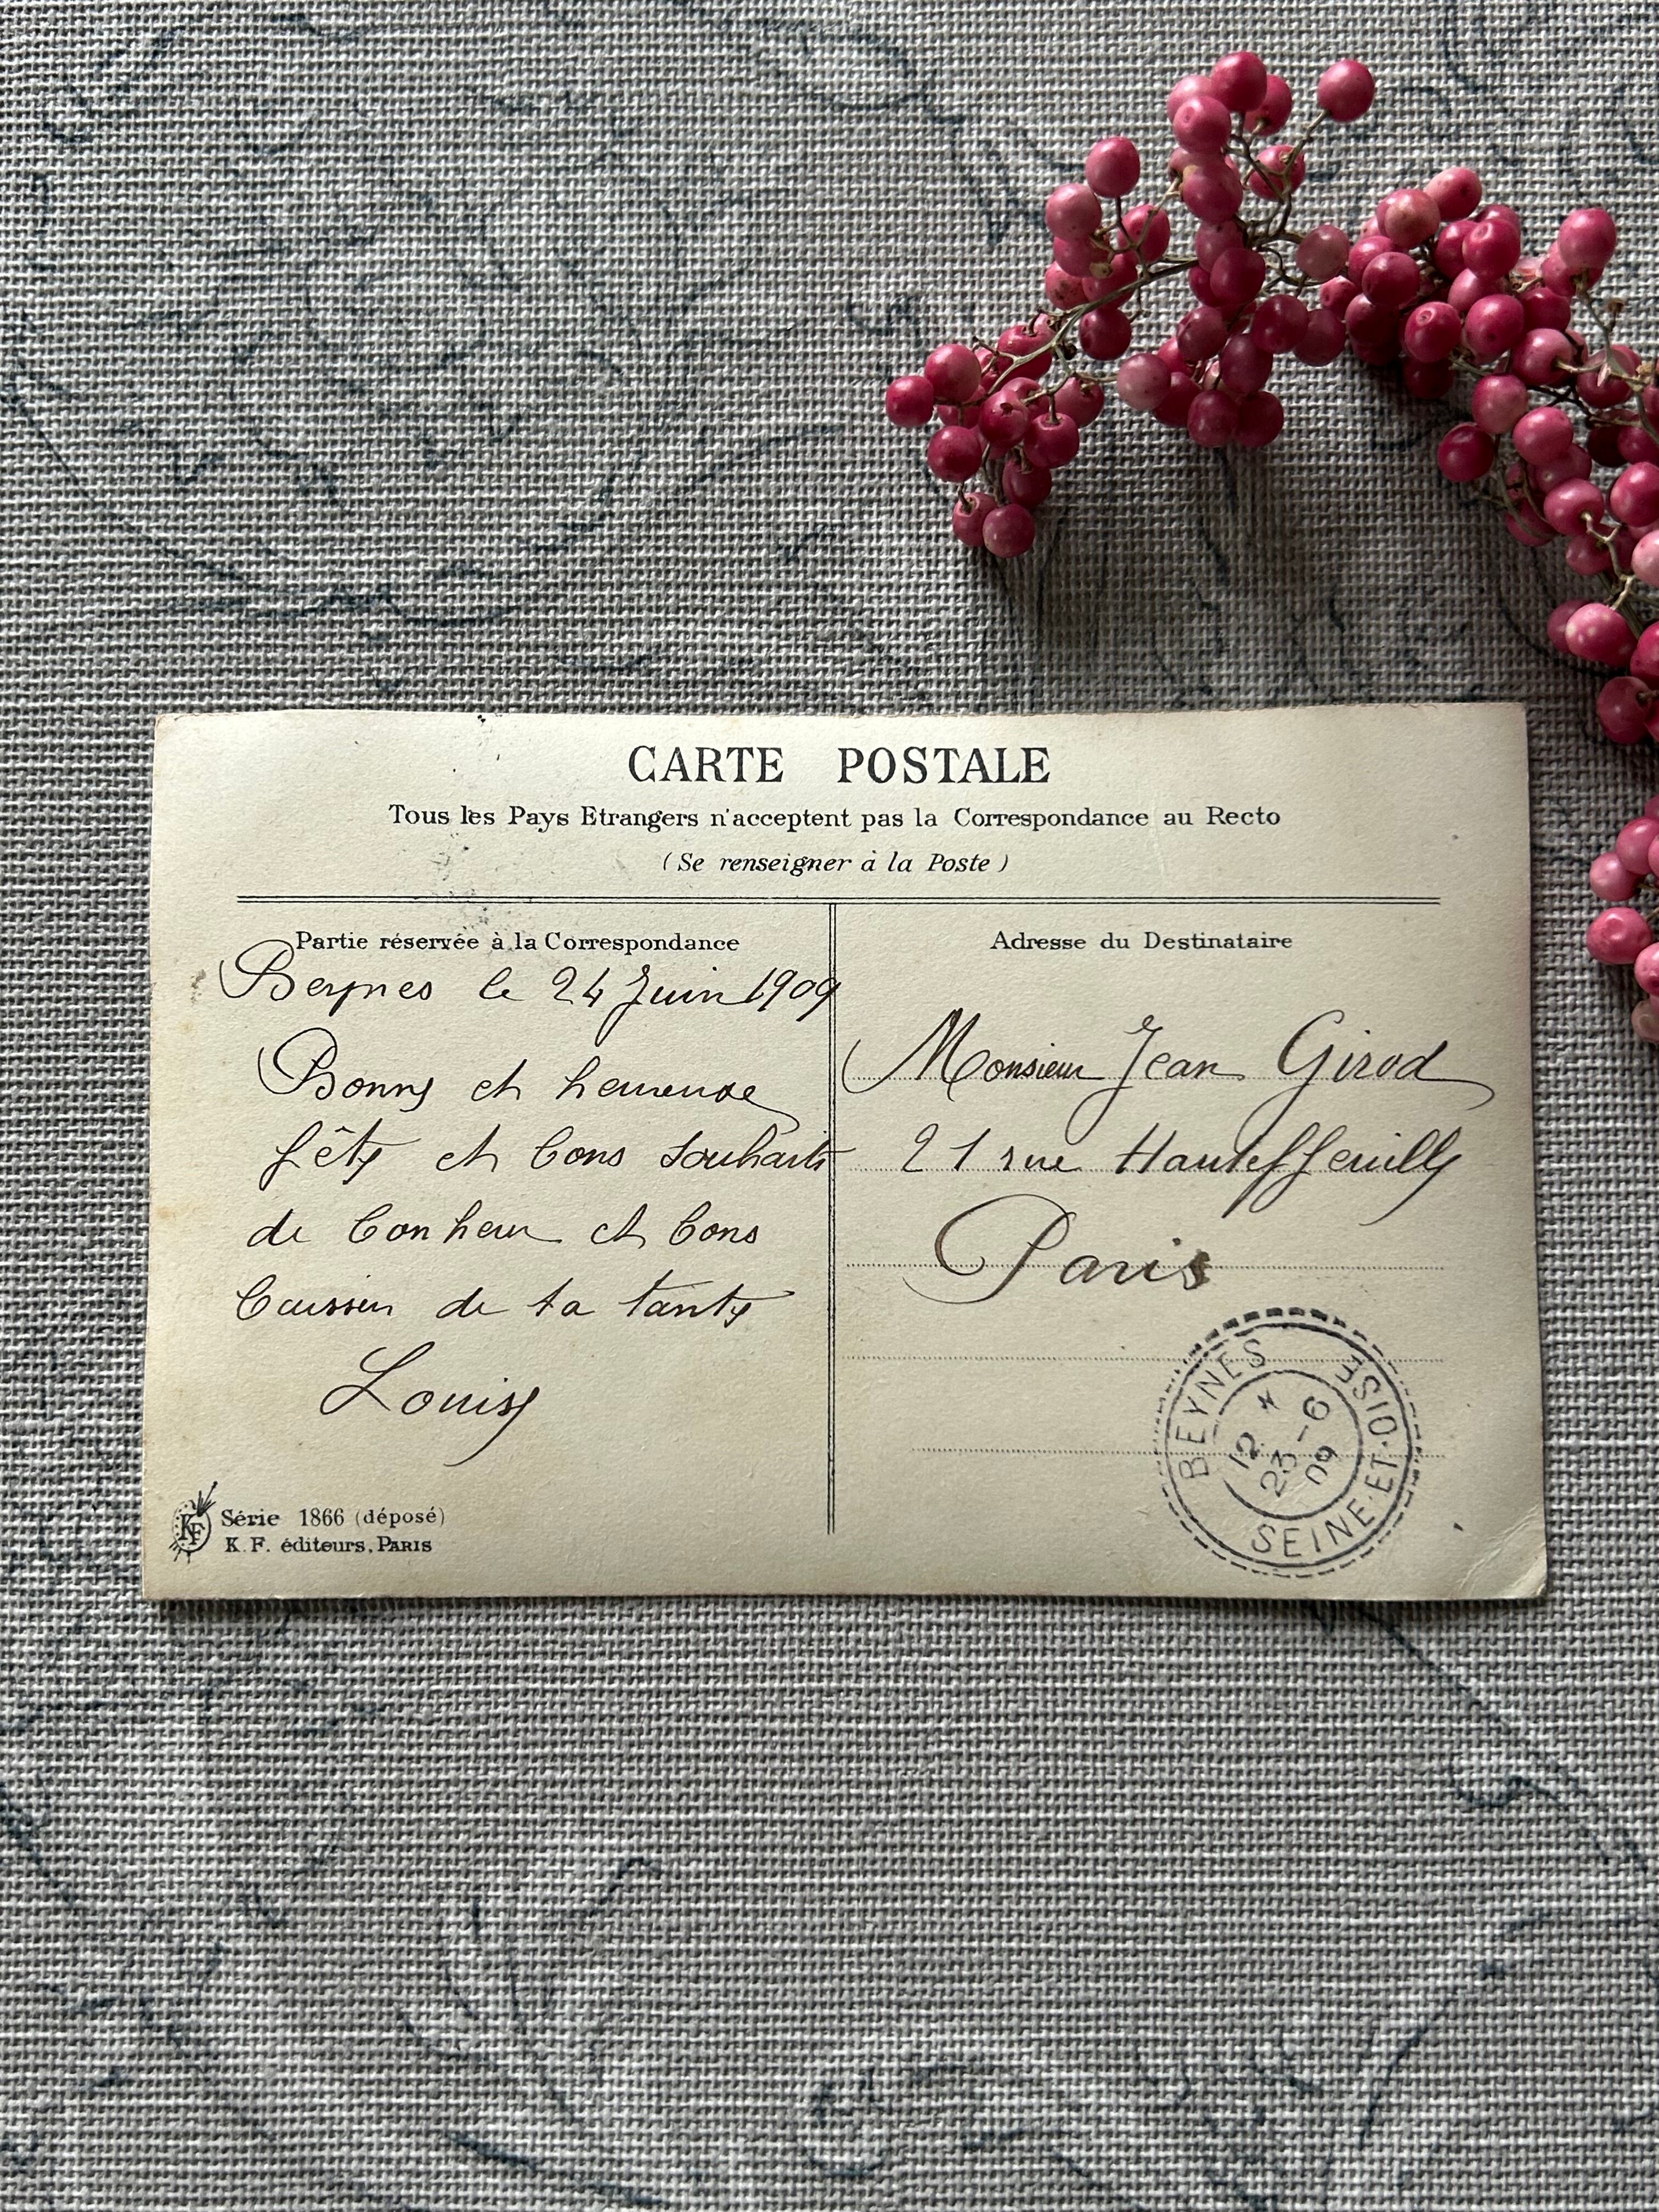 CARTE POSTALE
Tous les Pays Etrangers n'acceptent pas la Correspondance au Recto
(Se renseigner à la Poste)
Partie réservée à la Correspondance
Beynes le 24 Juin 1909
Bonne et heureuse
fête et bons souhaits
de bonheur et bons
baisers de ta tante
Louise
KF
Série 1866 (déposé)
K.F. éditeurs, PARIS
Adresse du Destinataire
Monsieur Jean Girod
21 rue Hauteffeuille
Paris
BEYNES
12 *
23-6
09
SEINE-ET-OISE